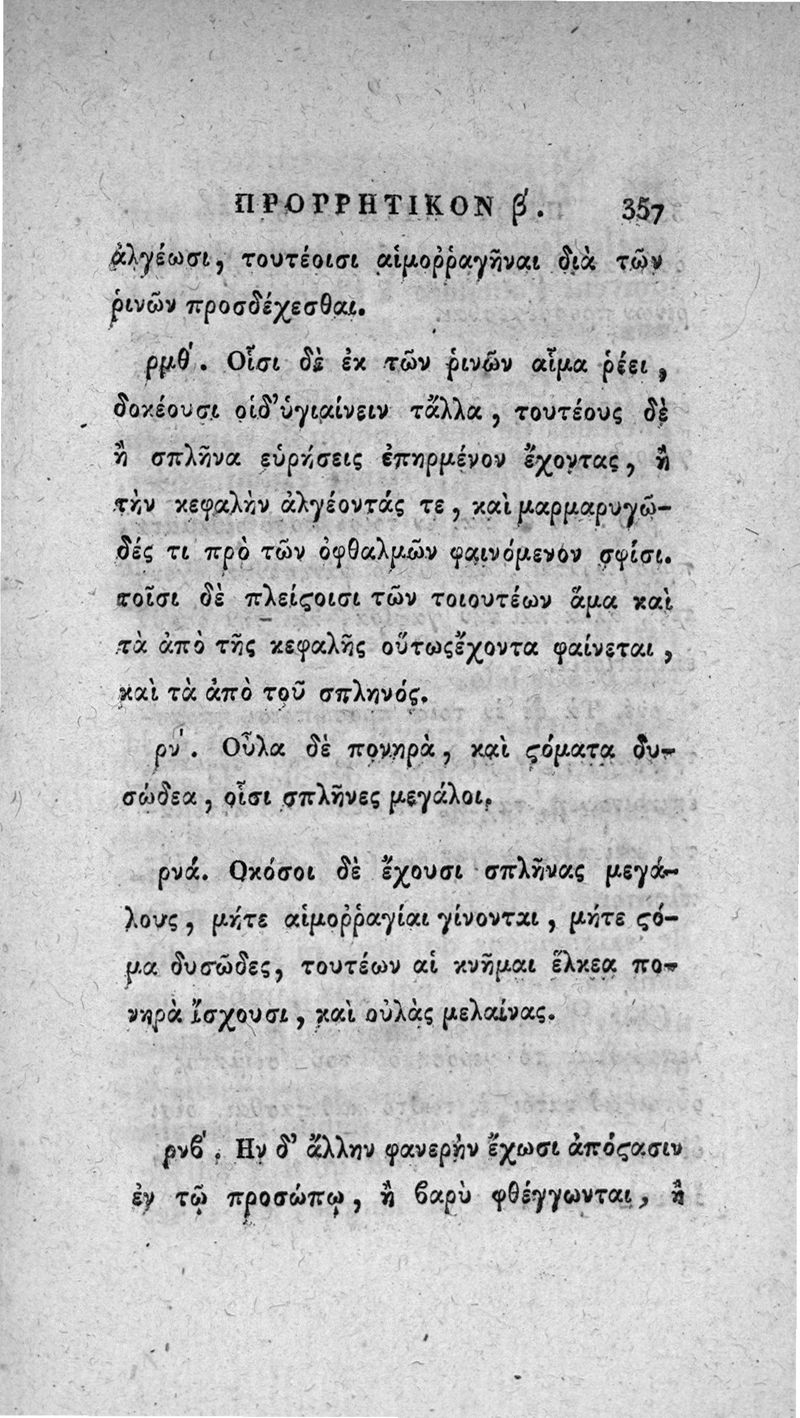 ΠΡΟΡΡΗΤΙΚΟΝ β΄. 357
ἀλγέωσι, τουτέοισι αἱμοῤῥαγῆναι διὰ τῶν
ῥινῶν προσδέχεσθαι.
ρμθ΄. Οἷσι δὲ ἐκ τῶν ῥινῶν αἷμα ῥέει,
δοκέουσι οἱδ᾽ὑγιαίνειν τἄλλα, τουτέους δὲ
ἢ σπλῆνα εὑρήσεις ἐπηρμένον ἔχοντας, ἢ
τὴν κεφαλὴν ἀλγέοντάς τε, καὶ μαρμαρυγῶ-
δές τι πρὸ τῶν ὀφθαλμῶν φαινόμενόν σφίσι.
τοῖσι δὲ πλείϛοισι τῶν τοιουτέων ἅμα καὶ
τὰ ἀπὸ τῆς κεφαλῆς οὕτωςἔχοντα φαίνεται,
καὶ τὰ ἀπὸ τοῦ σπληνός.
ρν΄. Οὖλα δὲ πονηρὰ, καὶ ϛόματα δυ-
σώδεα, οἷσι σπλῆνες μεγάλοι.
ρνά. Οκόσοι δὲ ἔχουσι σπλῆνας μεγά-
λους, μήτε αἱμοῤῥαγίαι γίνονται, μήτε ϛό-
μα δυσῶδες, τουτέων αἱ κνῆμαι ἕλκεα πο-
νηρὰ ἴσχουσι, καὶ οὐλὰς μελαίνας.
ρνϐ΄. Ην δ᾽ ἄλλην φανερὴν ἔχωσι ἀπόϛασιν
ἐν τῷ προσώπῳ, ἢ ϐαρὺ φθέγγωνται, ἢ